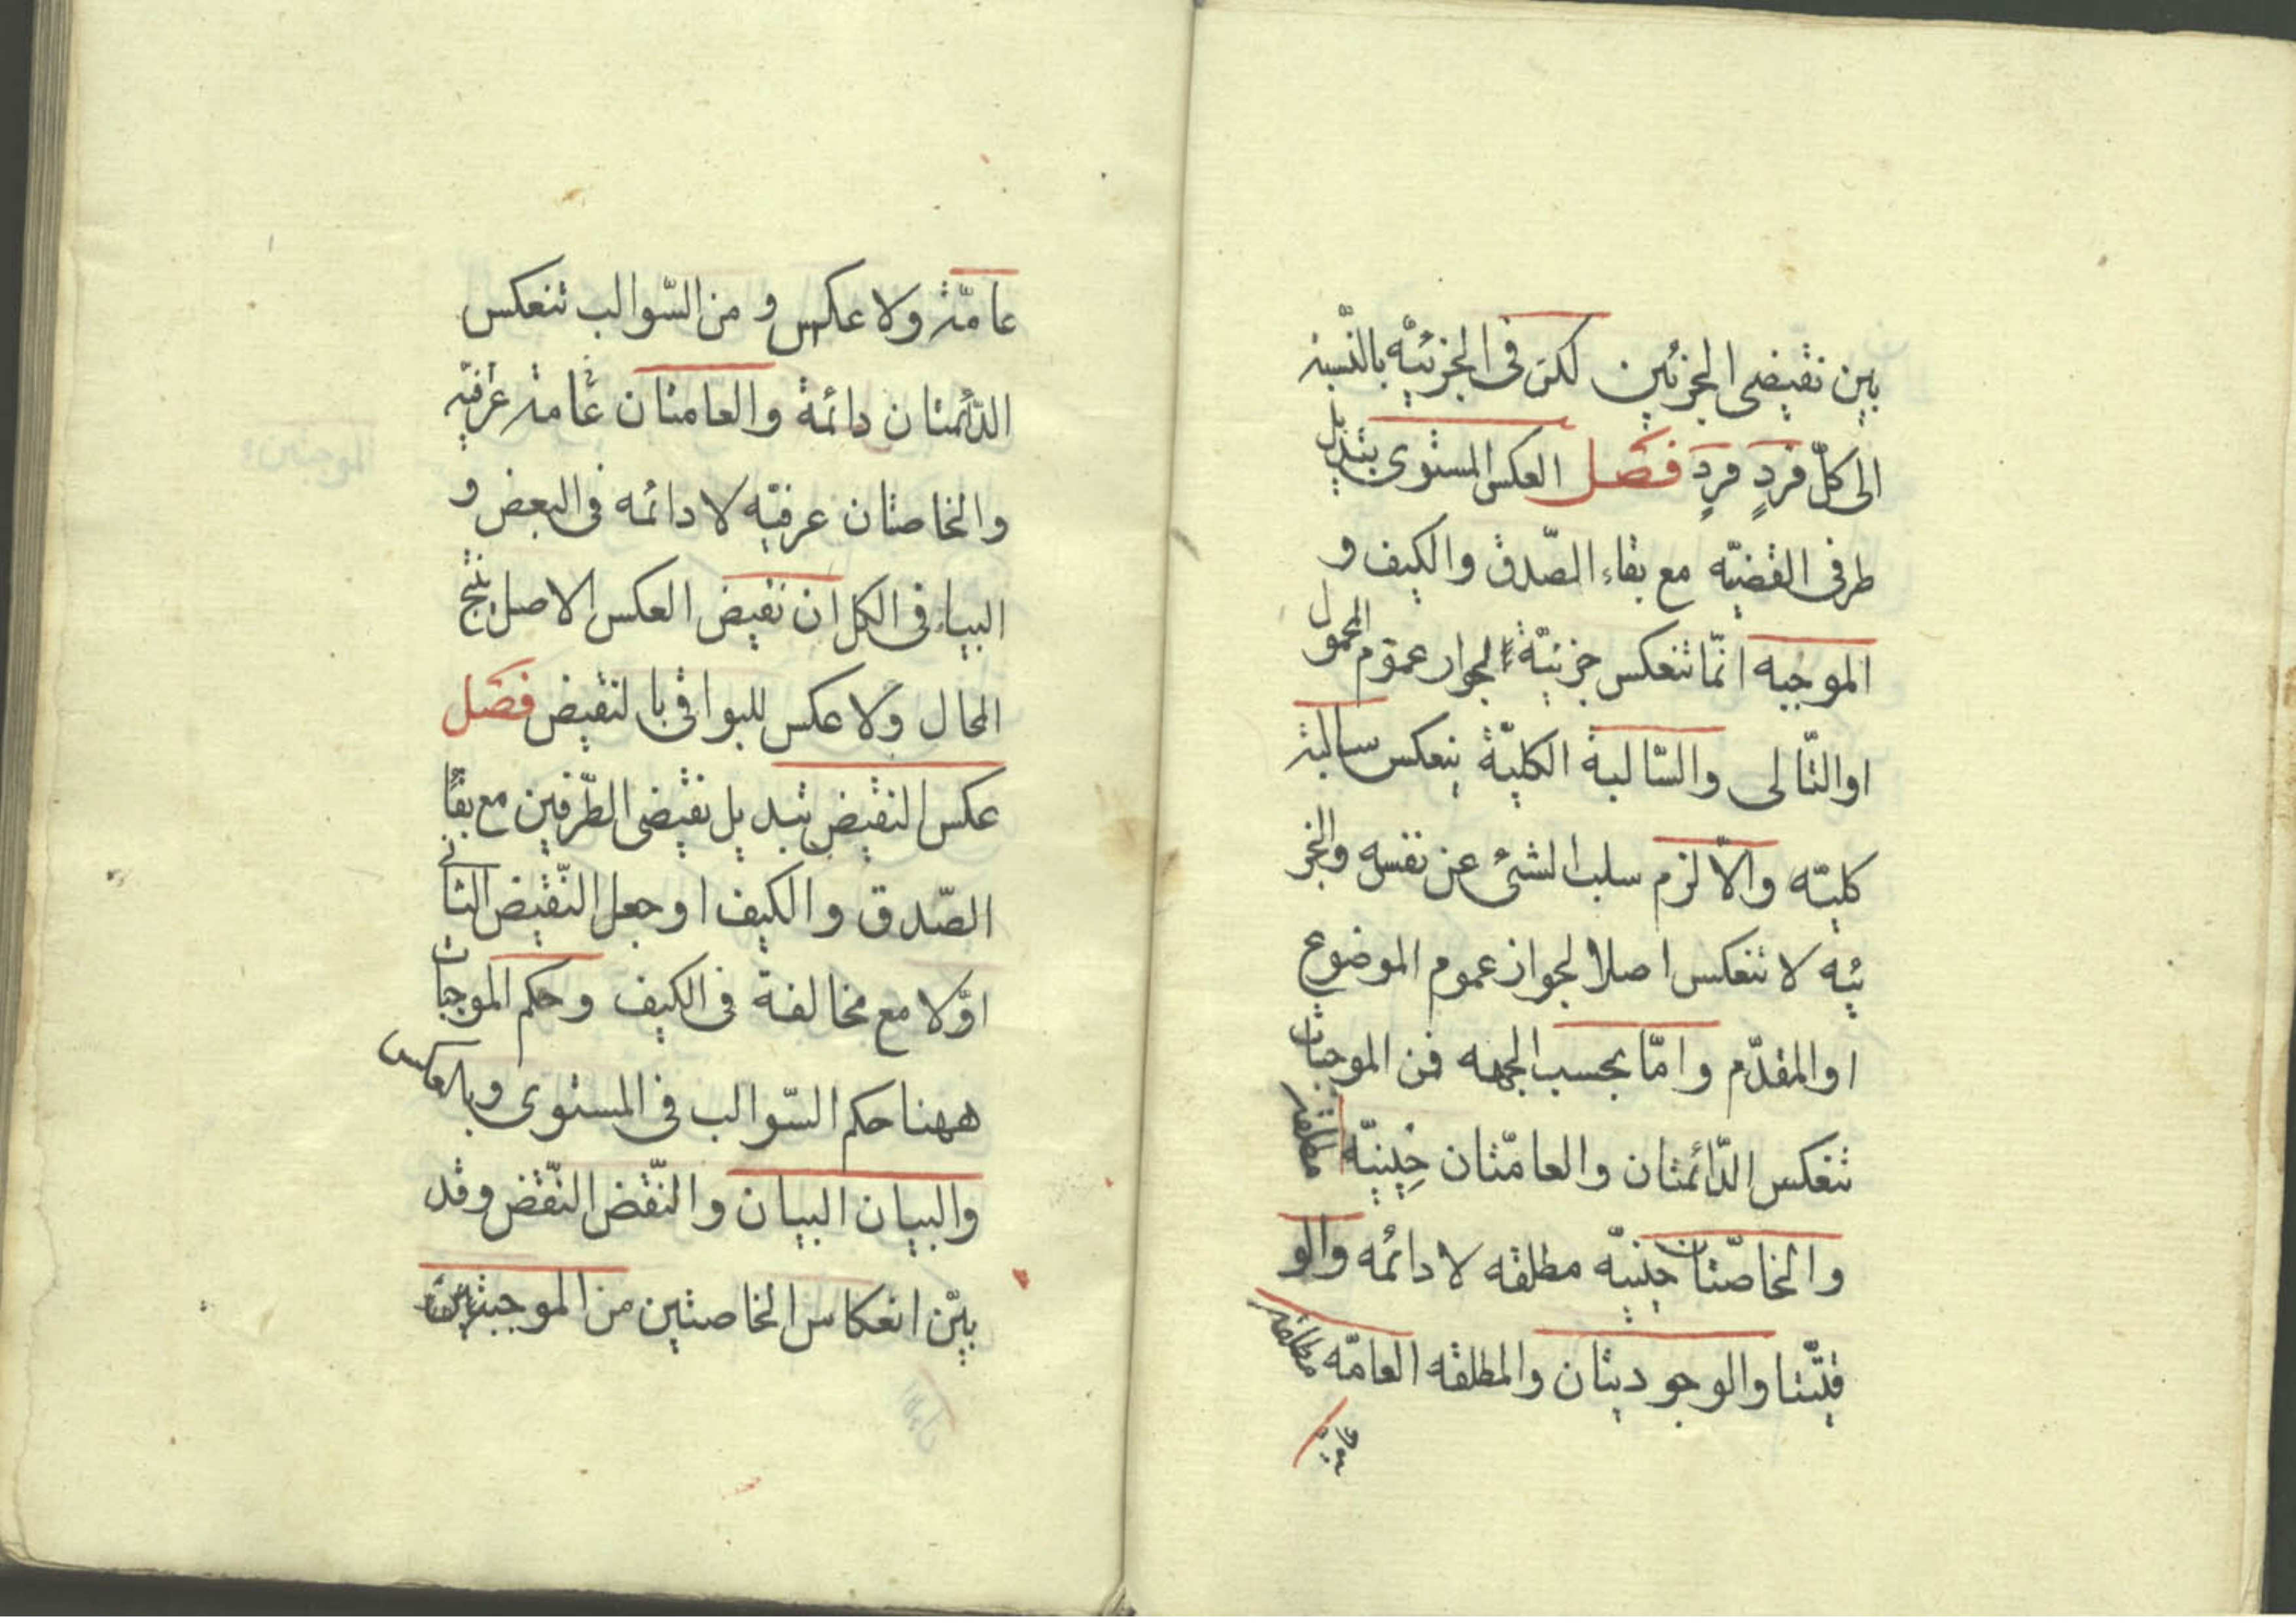 بين نقيضى الجزئين لكن فى الجزئيّة بالنّسبة
الى كلّ فردٍ فردٍ فصل العكس المستوى تبديل
طرفى القضيّه مع بقاء الصّدق والكيف و
الموجبه انّما تنعكس جزئيّة لجواز عموم المحمول
او التّالى والسّالبة الكليّة ينعكس سالبة
كليّه والّا لزم سلب الشئ عن نفسه والجز
ئيه لا تنعكس اصلا لجواز عموم الموضوع
او المقدّم وامّا بحسب الجهه فمن الموجبات
تنعكس الدّائمتان والعامّتان حينيّه مطلقه
والخاصّتان حينيّه مطلقه لا دائمه والو
قتيّتا والوجوديتان والمطلقه العامّه مطلقه
عامّة ولا عكس و من السّوالب تنعكس
الدّائمتان دائمة والعامتان عامة عرفيّه
والخاصتان عرفيّه لا دائمه فى البعض و
البيان فى الكل ان نقيض العكس الاصل ينتج
المحال ولا عكس للبواقى با لنقيض فصل
عكس النقيض تبديل نقيضى الطّرفين مع بقا
الصّدق والكيف او جعل النّقيض الثانى
اوّلا مع مخالفة فى الكيف وحكم الموجبات
ههنا حكم السّوالب فى المستوى وبالعكس
والبيان البيان والنّقض النّقض وقد
بيّن انعكاس الخاصتين من الموجبتين